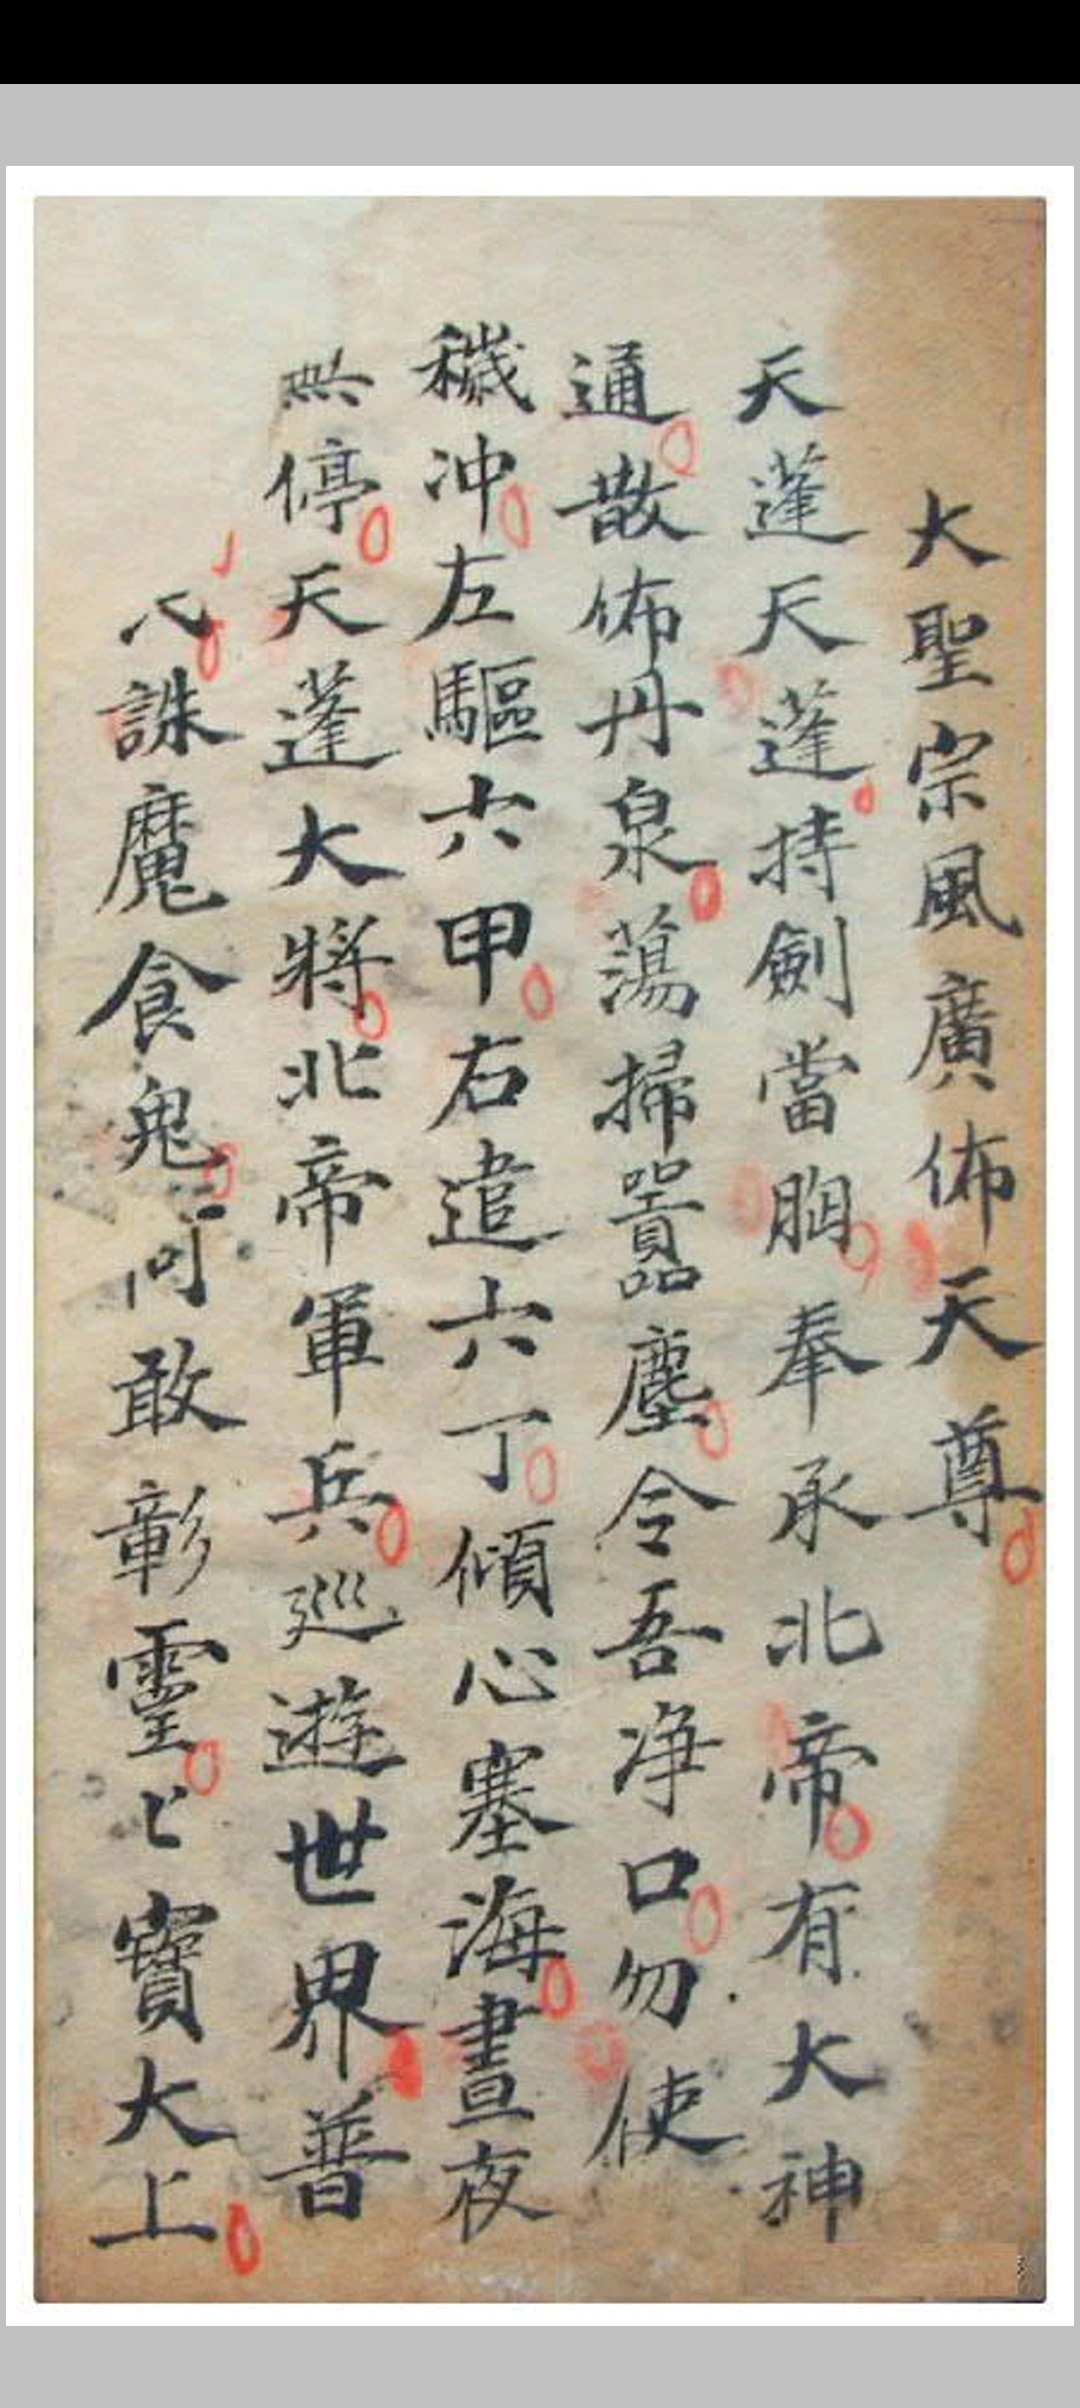 大聖宗風廣佈天尊
天蓬天蓬持劍當胸奉承北帝有大神
通散佈丹泉蕩掃囂塵令吾净口勿使
穢冲左驅六甲右遣六丁傾心塞海晝夜
停天蓬大將北帝軍兵巡遊世界普
誅魔食鬼敢彰靈寶大上